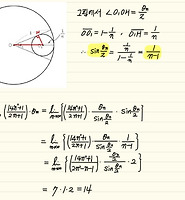 그림에서 ∠O₁OH = θn/2
OO₁ = 1 - 1/n , O₁H = 1/n
∴ sin θn/2 = (1/n)/(1 - 1/n) = 1/(n-1)
(14n²+1)/(2n+1) · θn = lim n→∞ { (14n²+1)/(2n+1) · (θn/2)/(sin θn/2) · sin θn/2 }
= lim n→∞ { (14n²+1)/(2n+1) · (θn/2)/(sin θn/2) · 1/(n-1) }
= lim n→∞ { (14n²+1)/(2n²-n-1) · (θn/2)/(sin θn/2) · 2 }
= 7 · 1 · 2 = 14